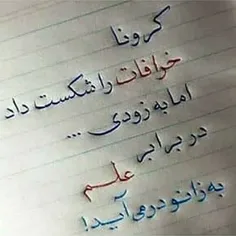 کرونا
خرافات را شکست داد
اما به زودی ...
در برابر
علم
به زانو در می آید!